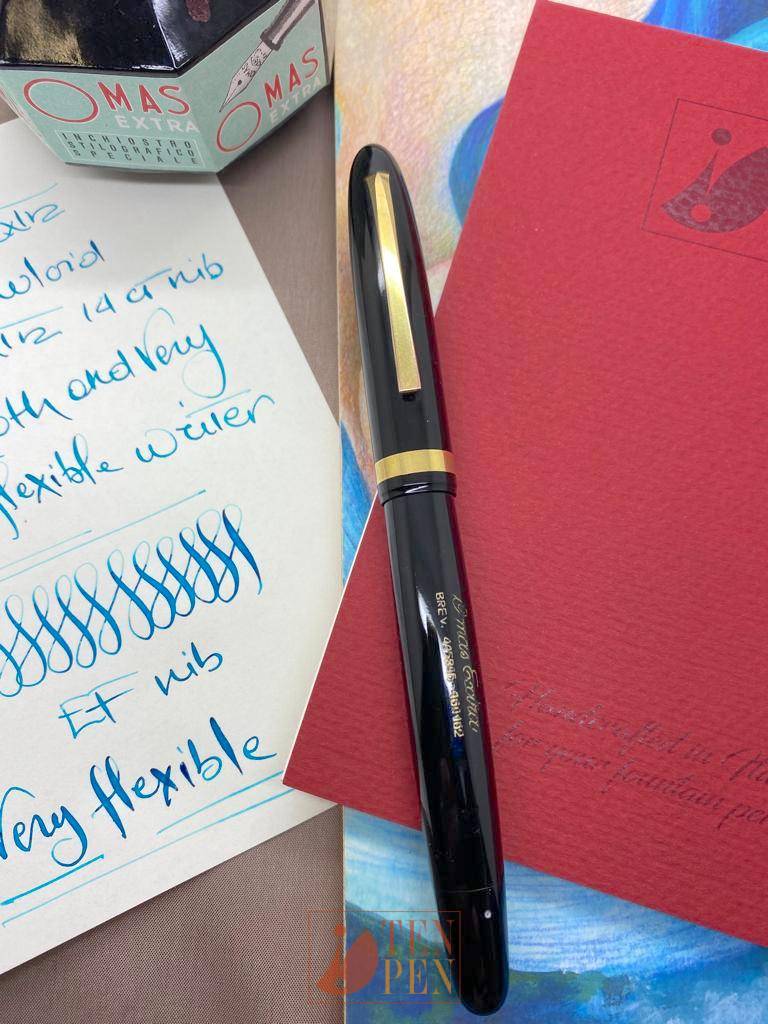 OMAS
EXTRA
INCHIOSTRO
STILOGRAFICO
SPECIALE
OMAS
EXTRA
14 ct nib
and very
flexible writer
EF nib
Very flexible
Omas Extra
BREV.
Handcrafted in
for your fountain pen
TEN
PEN